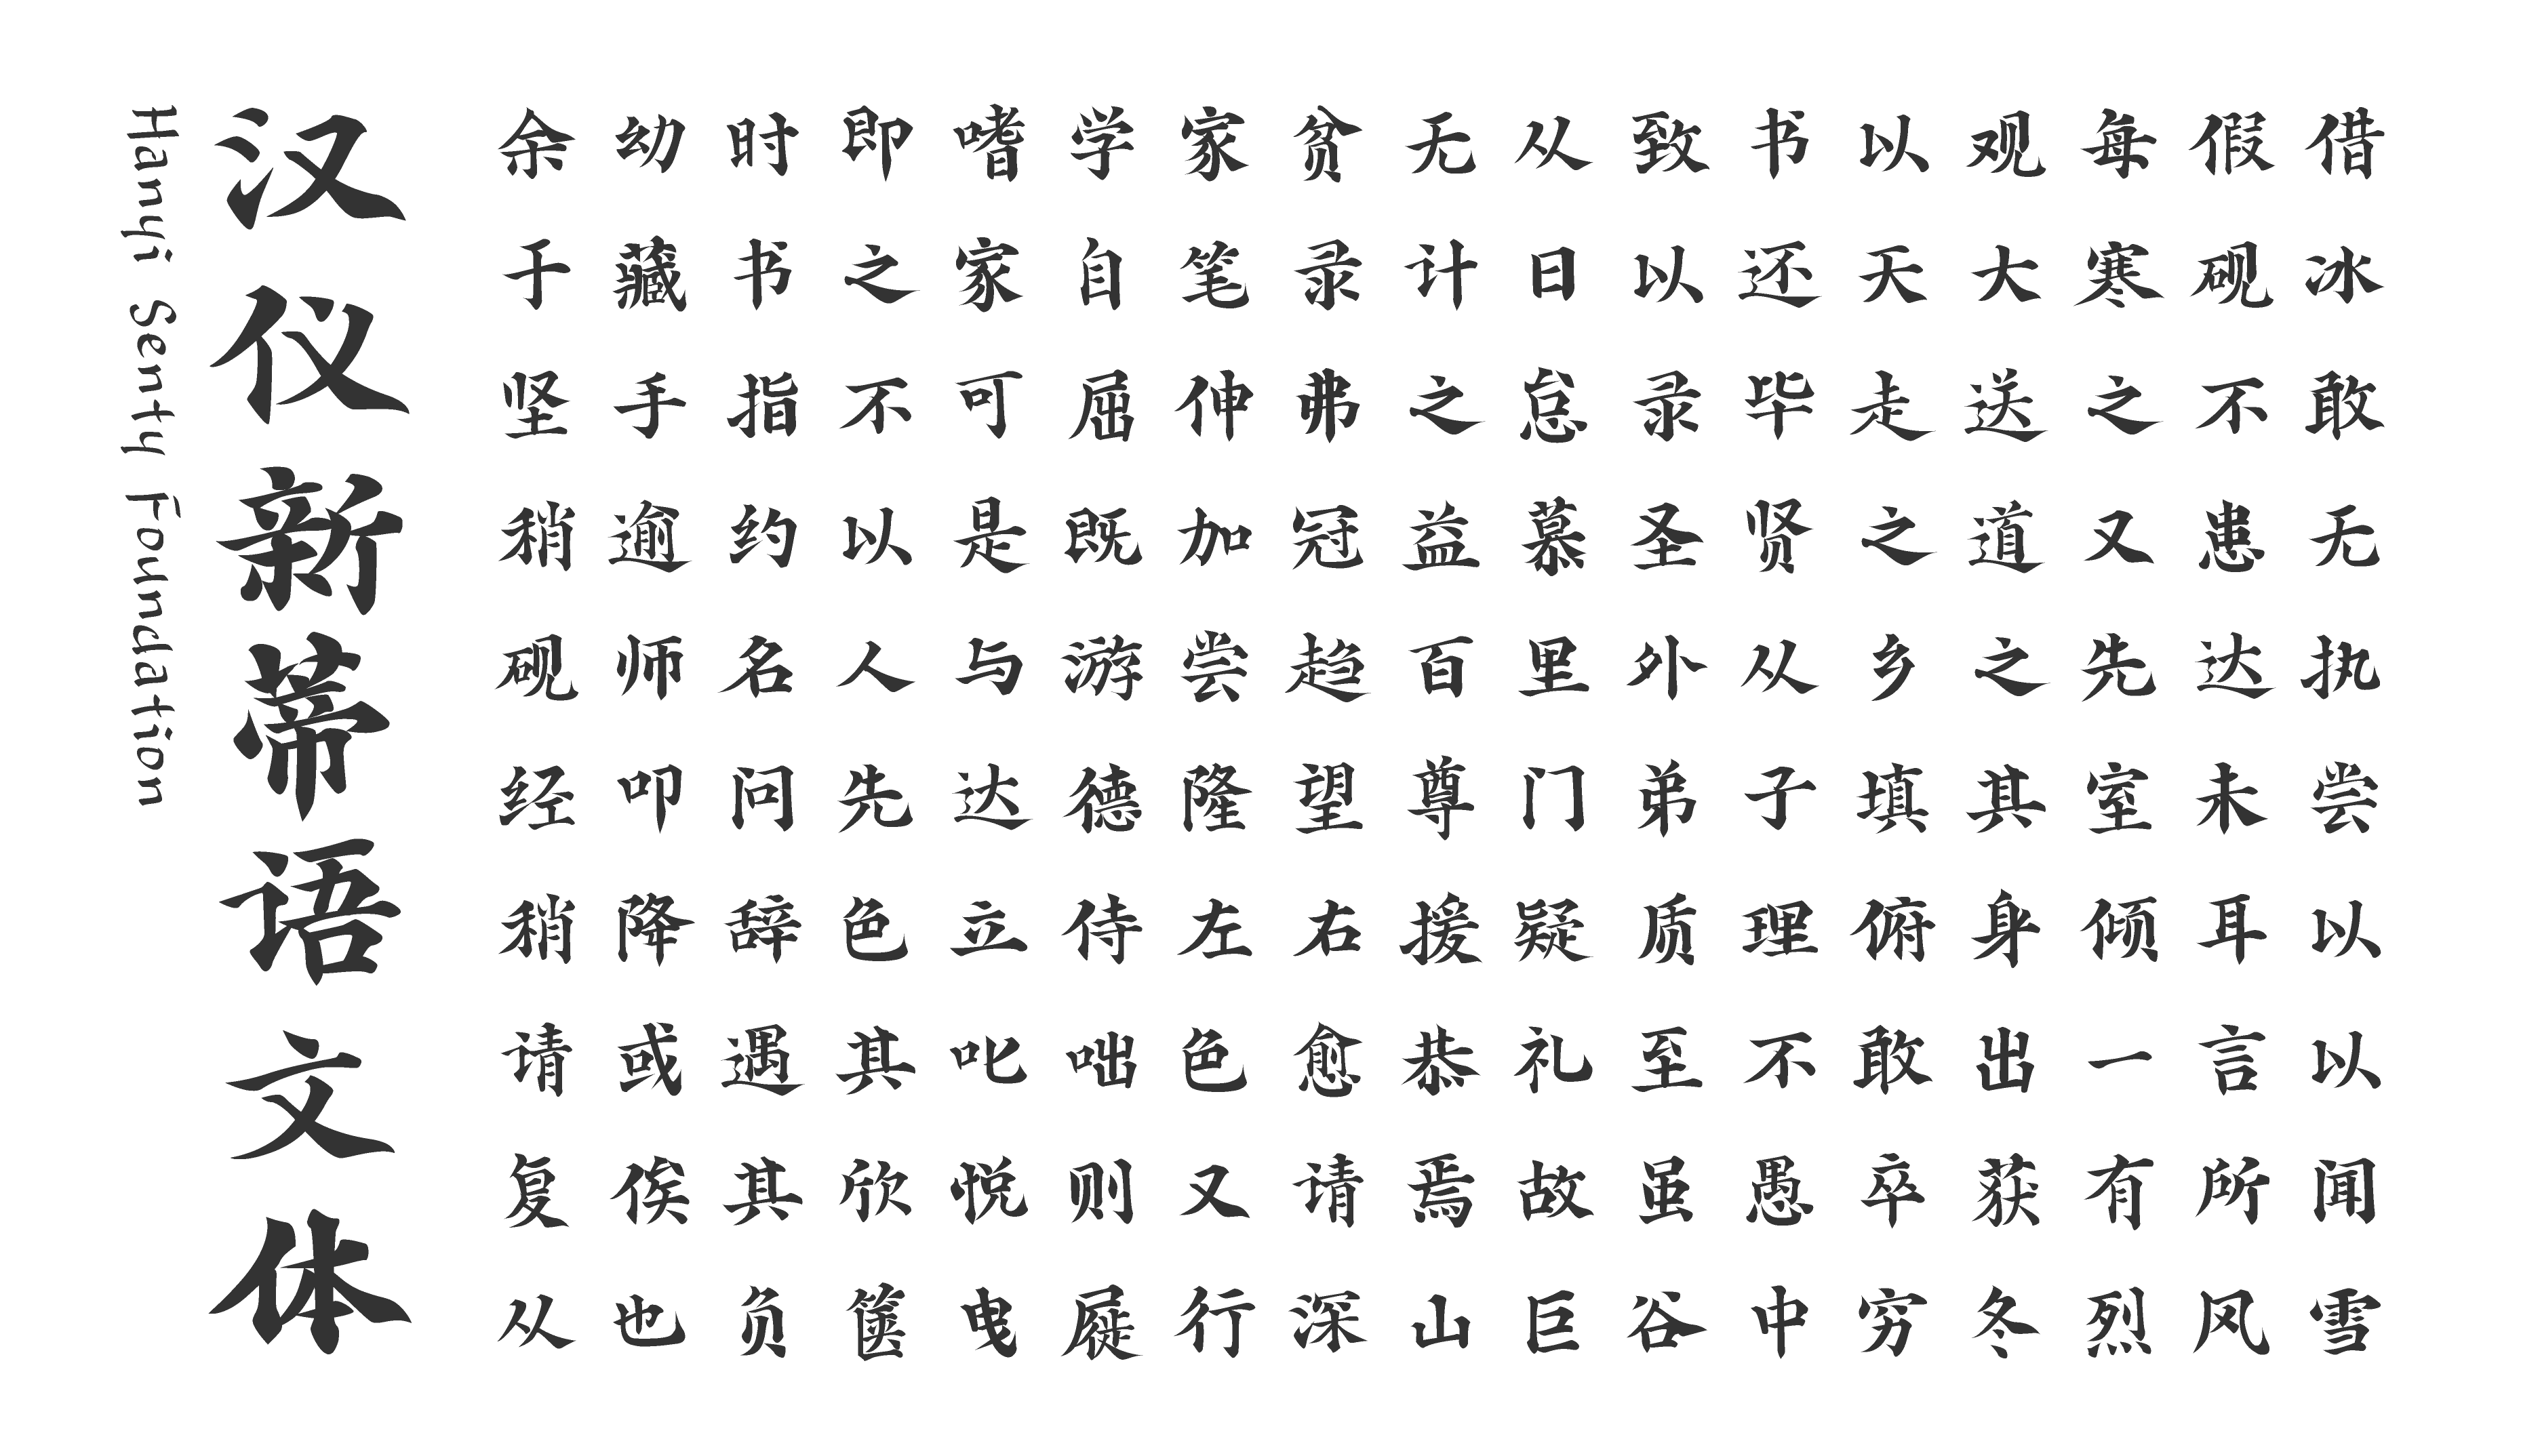 汉仪新蒂语文体
Hanyi Senty Foundation
余幼时即嗜学家贫无从致书以观每假借
于藏书之家自笔录计日以还天大寒砚冰
坚手指不可屈伸弗之怠录毕走送之不敢
稍逾约以是既加冠益慕圣贤之道又患无
砚师名人与游尝趋百里外从乡之先达执
经叩问先达德隆望尊门弟子填其室未尝
稍降辞色立侍左右援疑质理俯身倾耳以
请或遇其叱咄色愈恭礼至不敢出一言以
复俟其欣悦则又请焉故虽愚卒获有所闻
从也负箧曳屣行深山巨谷中穷冬烈风雪